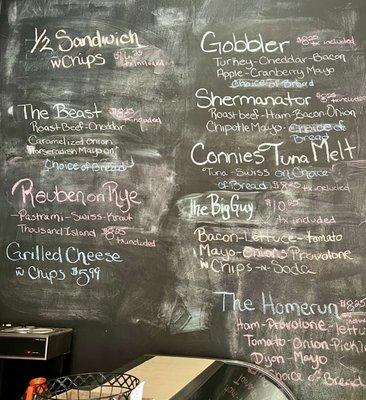 1/2 Sandwich
w Chips
tx included
The Beast $8.25
tx included
Roast Beef-Cheddar
Caramelized Onion
Horseradish Mayo on
Choice of Bread
Reuben on Rye
Pastrami-Swiss-Kraut
Thousand Island $8.25
tx included
Grilled Cheese
w Chips $5.99
Gobbler $8.25
tx included
Turkey-Cheddar-Bacon
Apple-Cranberry Mayo
Choice of Bread
Shermanator
tx included
Roast Beef-Ham-Bacon Onion
Chipotle Mayo-Choice of
Bread
Connies Tuna Melt
Tuna Swiss on Choice
of Bread $8.25 tx included
The Big Guy $10.25
tx included
Bacon-Lettuce-tomato
Mayo-Onions Provolone
w Chips-n-Soda
The Homerun $8.25
Ham-Provolone-lettu
Tomato-Onion-Pickle
Dijon-Mayo
Choice of Bread